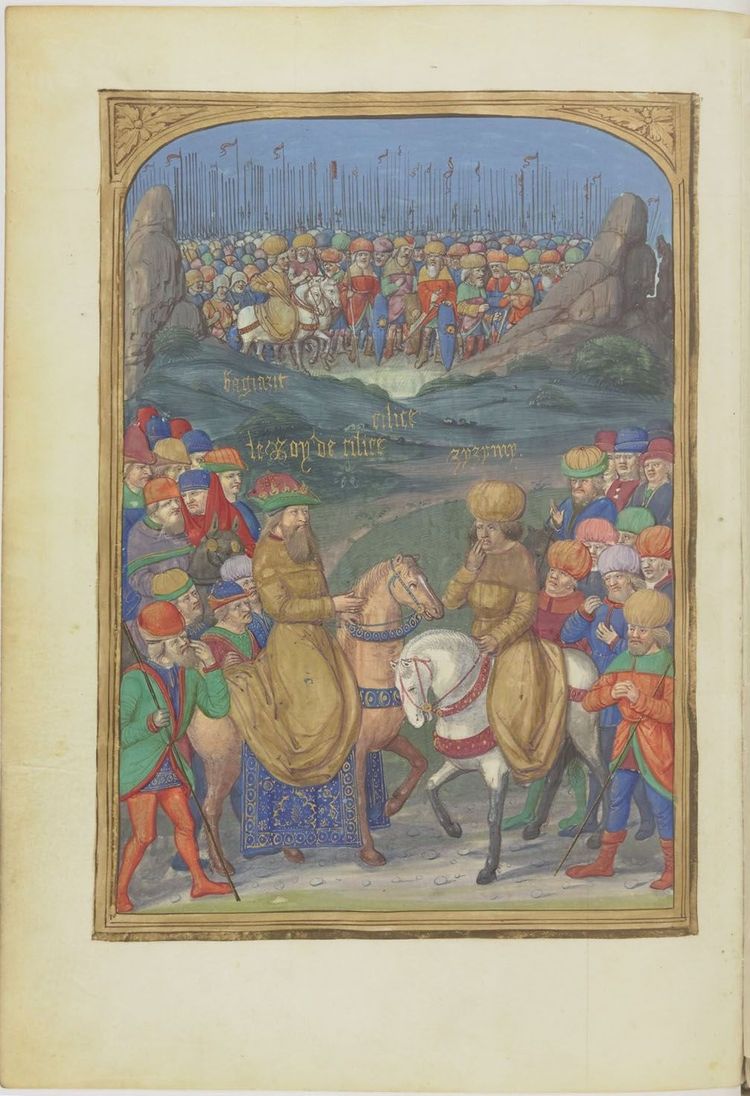 bagiazit
cilice
le Roy de cilice
zyzymy.